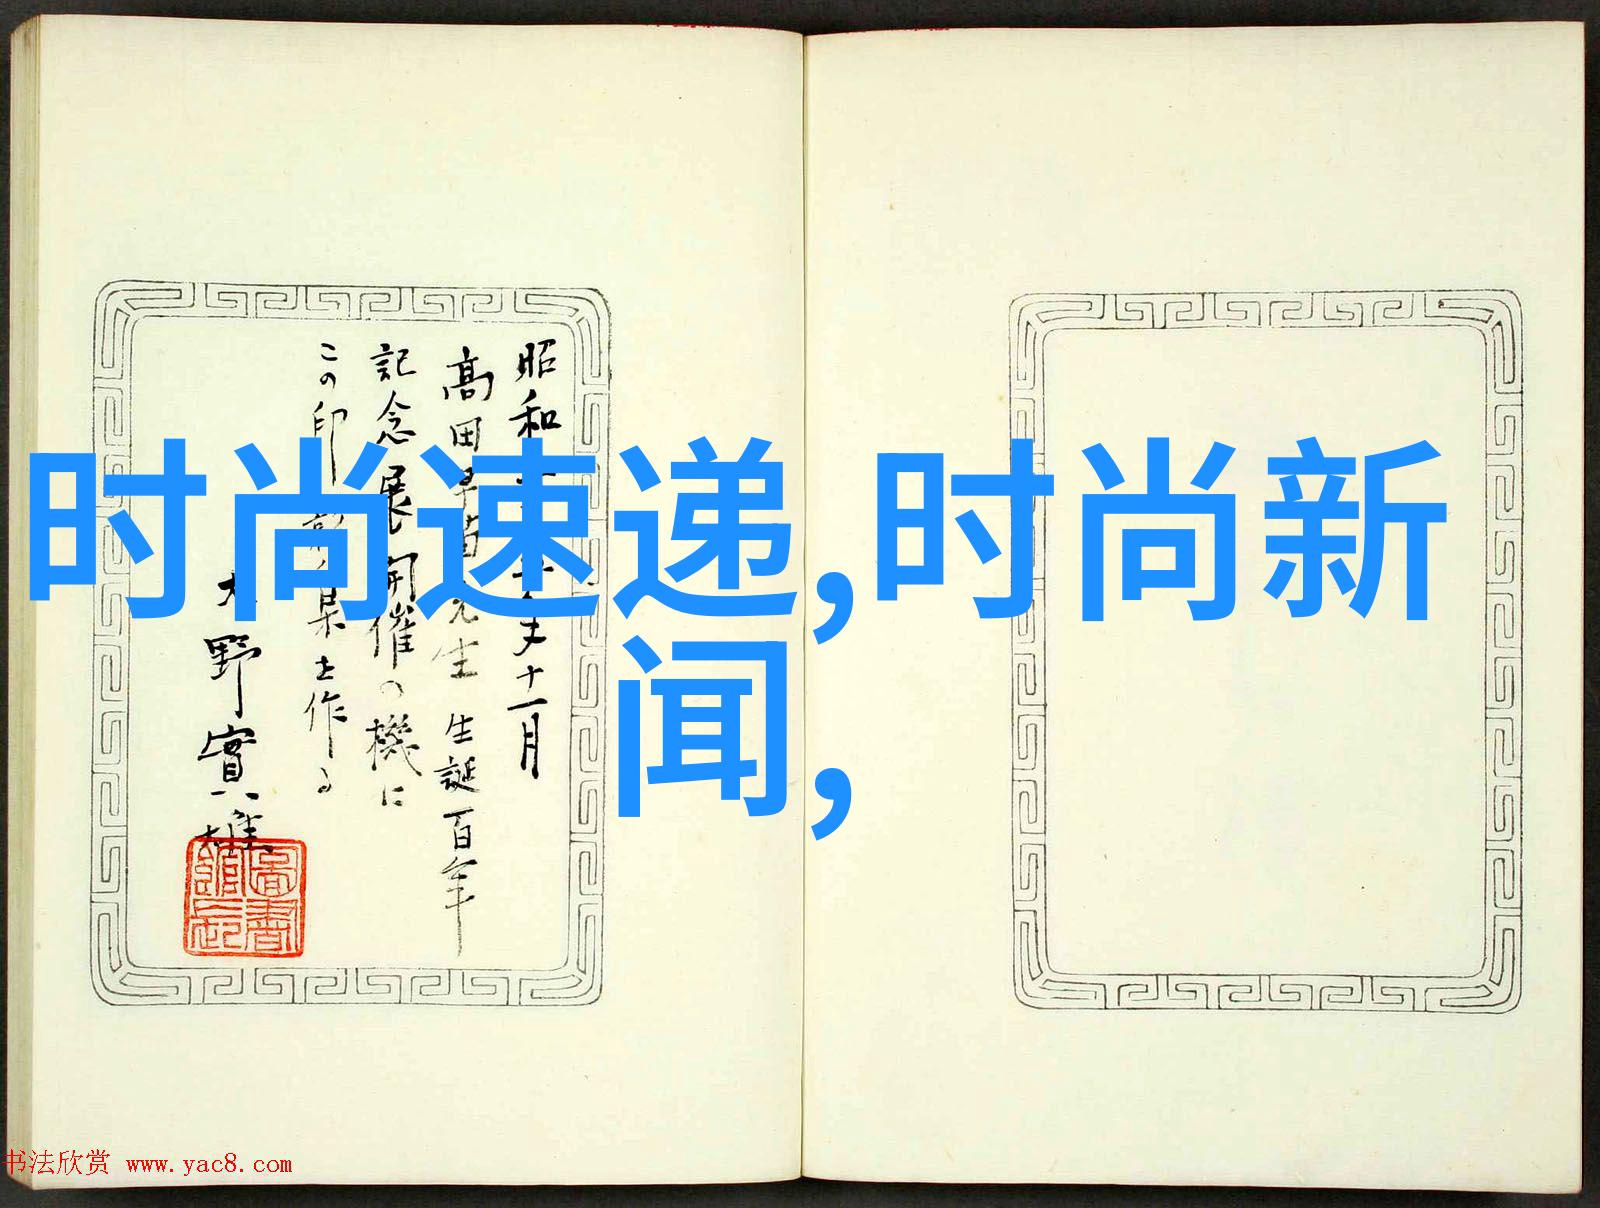 时尚速递,时尚新
闻,
昭和年十一月
高田早苗先生 生誕百年
記念展開催の機に
この印集を作る
大野實雄
圖書館長
书法欣赏 www.yac8.com